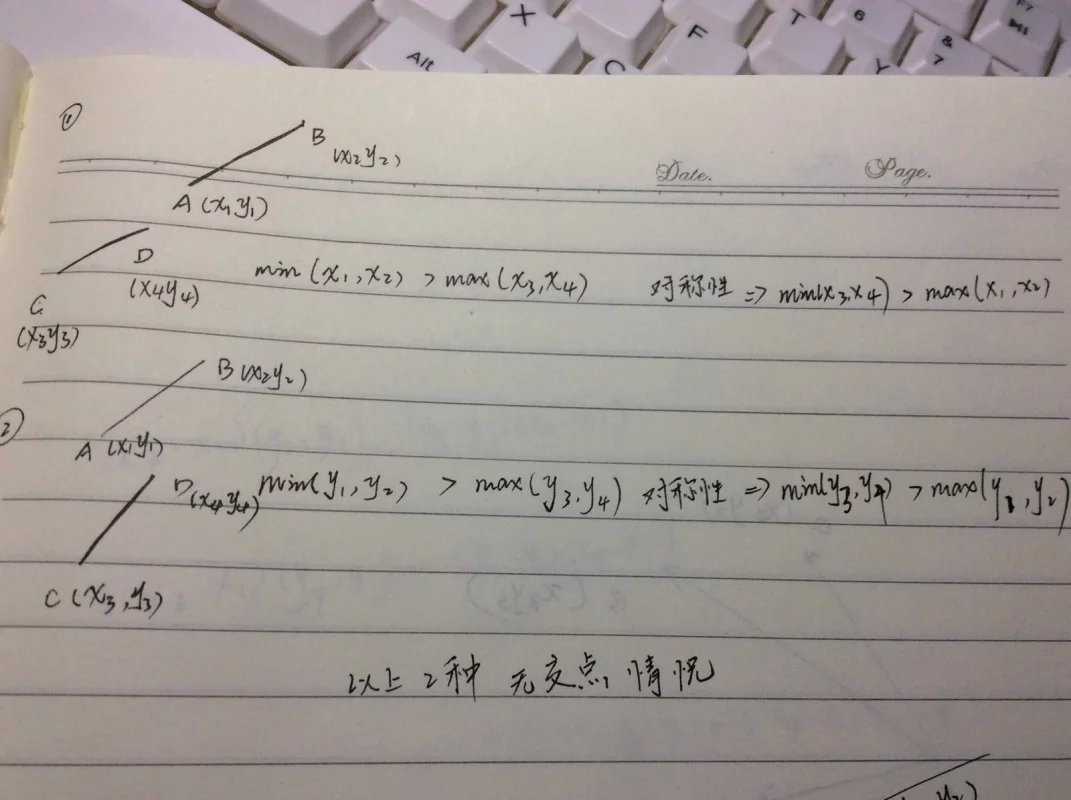 X
Alt
C
F
T
6
Y
&
7
F7
①
B
(x₂y₂)
Date. Page.
A (x₁y₁)
D
(x₄y₄)
min (x₁,x₂) > max (x₃,x₄) 对称性 => min(x₃,x₄) > max(x₁,x₂)
C
(x₃y₃)
B (x₂y₂)
②
A (x₁y₁)
D (x₄y₄) min(y₁,y₂) > max(y₃,y₄) 对称性 => min(y₃,y₄) > max(y₁,y₂)
C (x₃,y₃)
以上2种 无交点 情况
y₂)